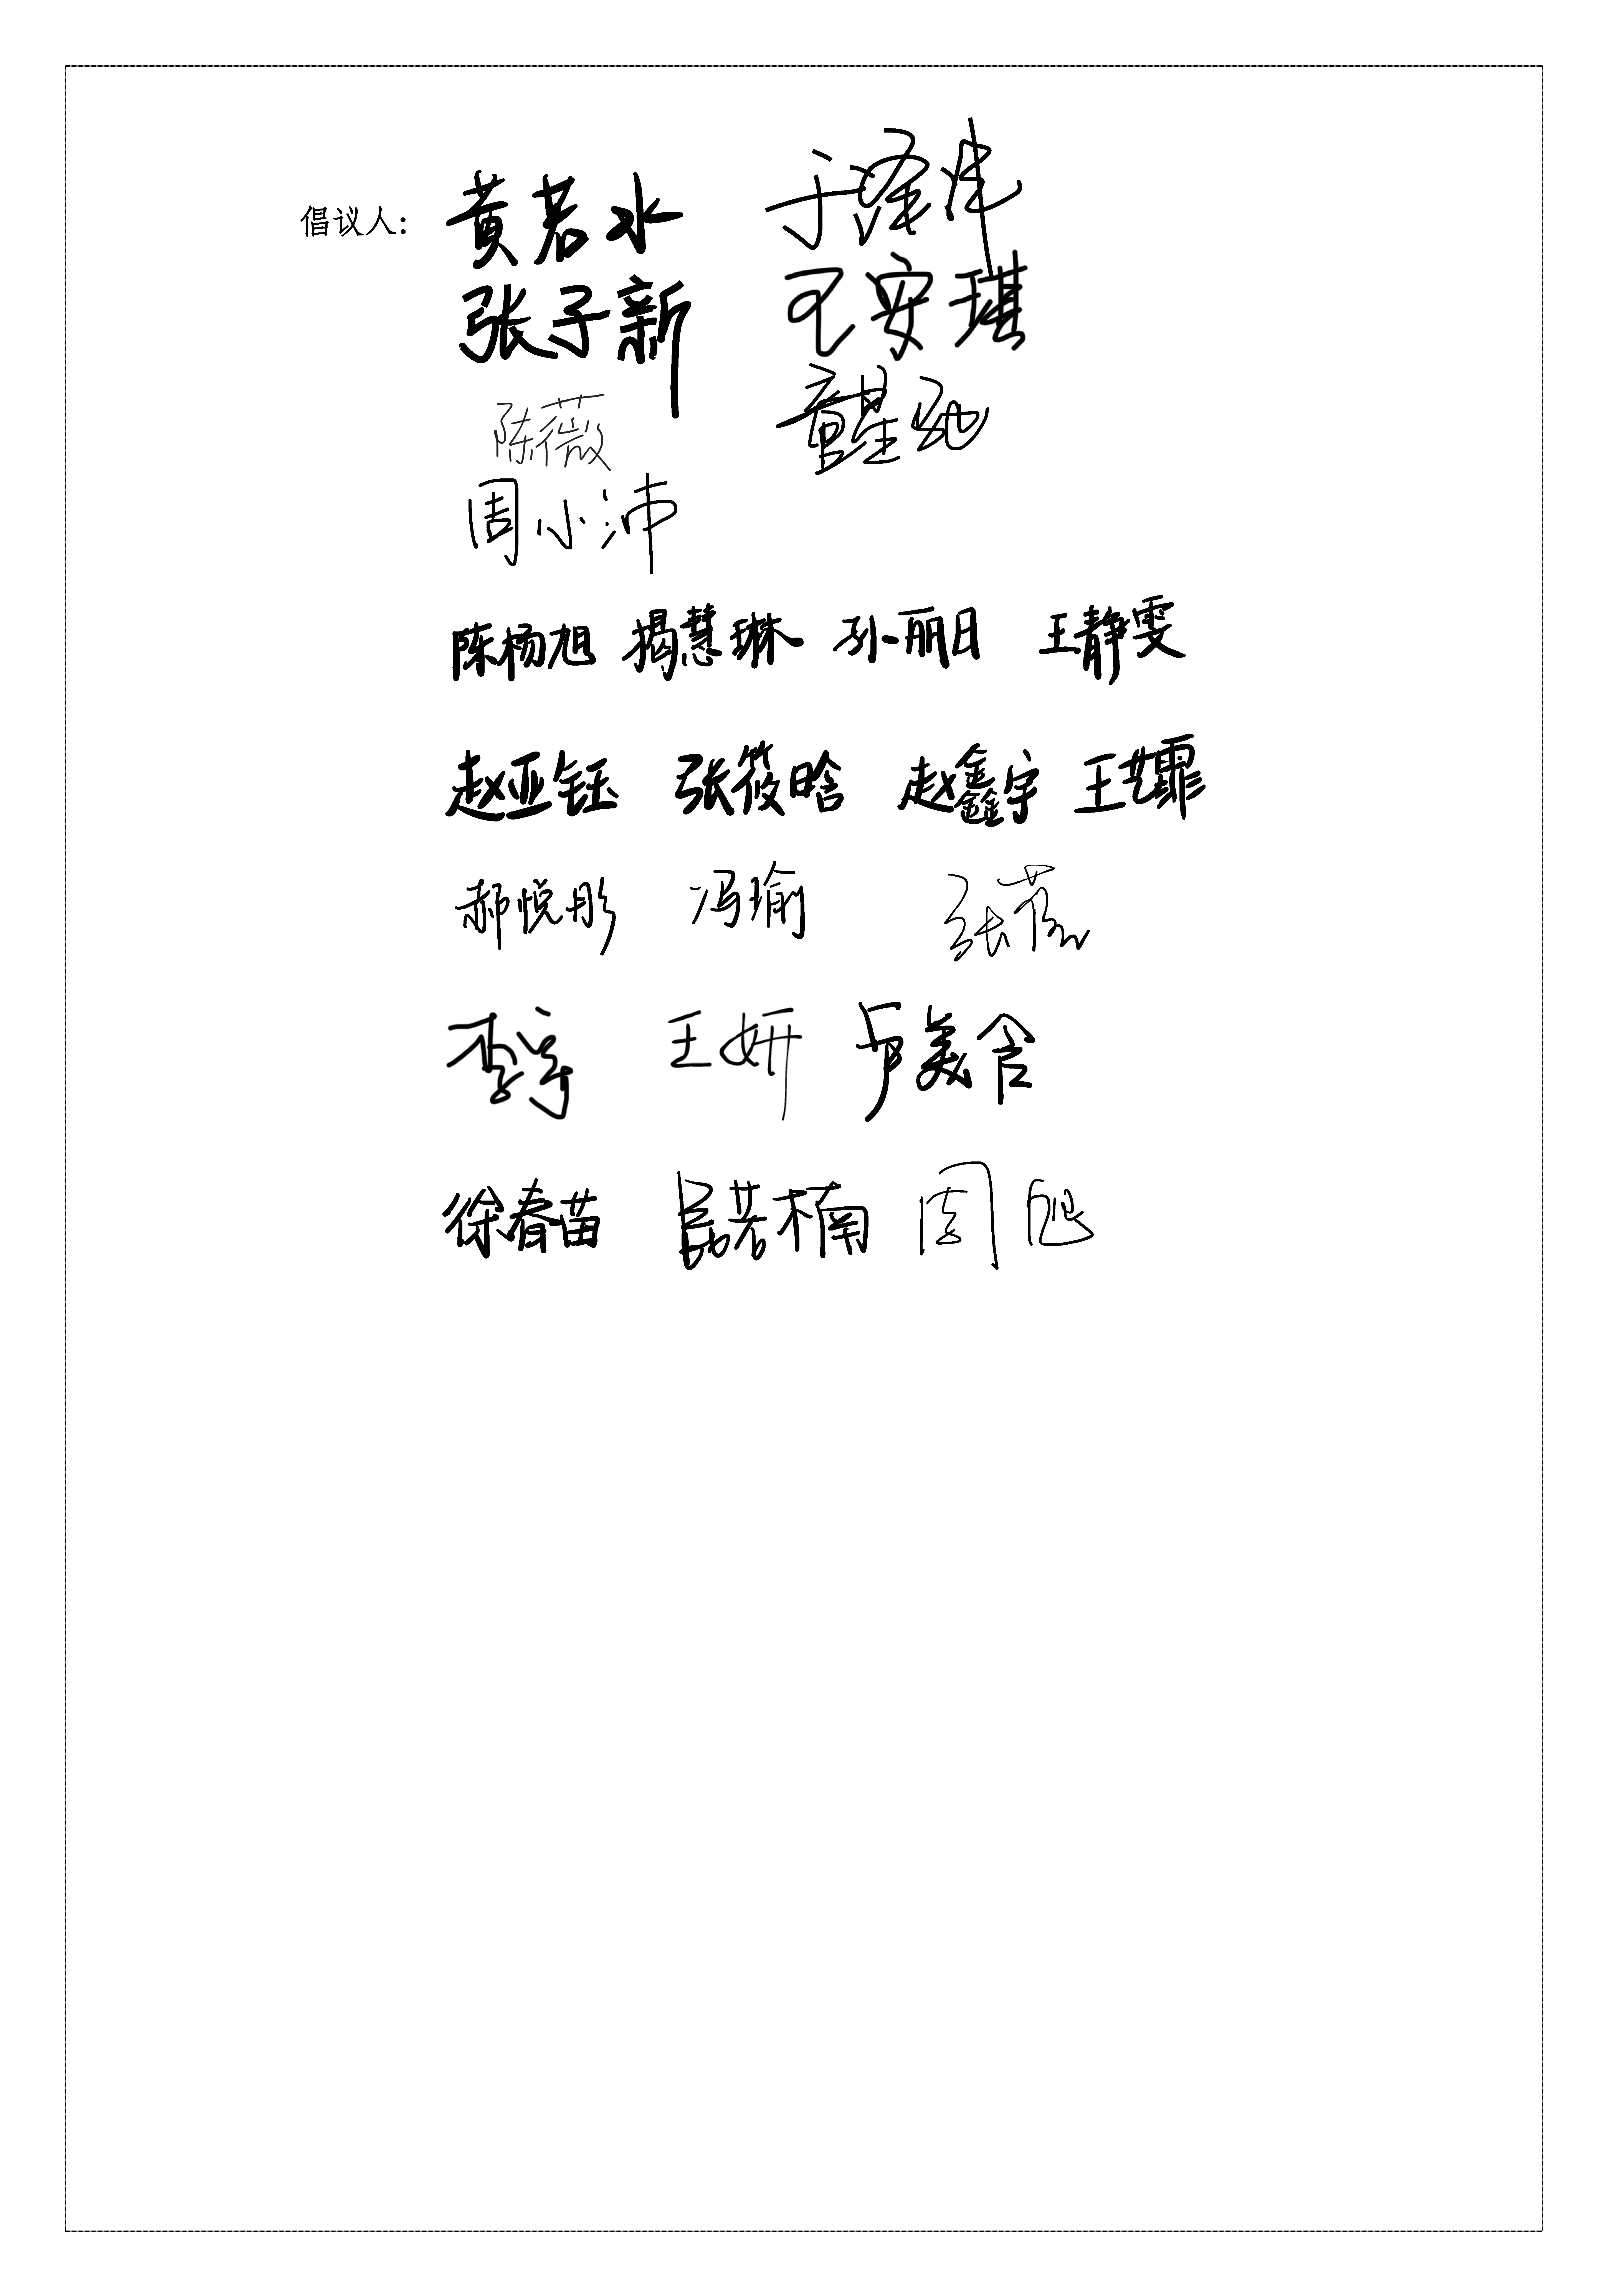 倡议人： 黄若水 于泽沣
张子新 王安琪
陈薇 童星驰
周小沛
陈杨旭 揭慧琳 孙丽日 王静雯
赵亚钰 张筱晗 赵鑫宇 王艺霏
郝悦彤 冯瑜 张薇
李享 王妍 卢美含
徐春苗 若楠 周旭